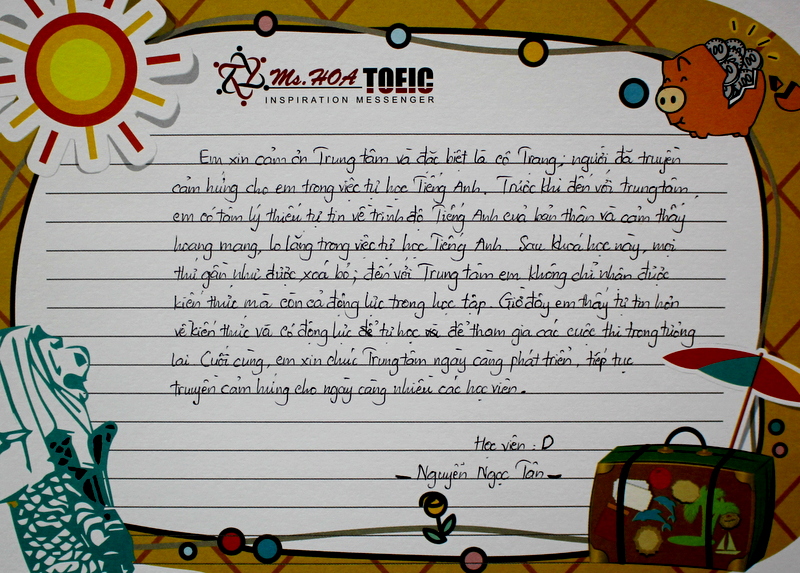 Ms.HOA TOEIC
INSPIRATION MESSENGER
Em xin cảm ơn Trung tâm và đặc biệt là cô Trang, người đã truyền
cảm hứng cho em trong việc tự học Tiếng Anh. Trước khi đến với trung tâm,
em có tâm lý thiếu tự tin về trình độ Tiếng Anh của bản thân và cảm thấy
hoang mang, lo lắng trong việc tự học Tiếng Anh. Sau khoá học này, mọi
thứ gần như được xoá bỏ; đến với Trung tâm em không chỉ nhận được
kiến thức mà còn cả động lực trong học tập. Giờ đây em thấy tự tin hơn
về kiến thức và có động lực để tự học để tham gia các cuộc thi trong tương
lai. Cuối cùng, em xin chúc Trung tâm ngày càng phát triển, tiếp tục
truyền cảm hứng cho ngày càng nhiều các học viên.
Học viên : D
- Nguyễn Ngọc Tân -